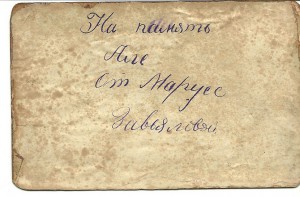 На память
Але
От Маруси
Завьяловой